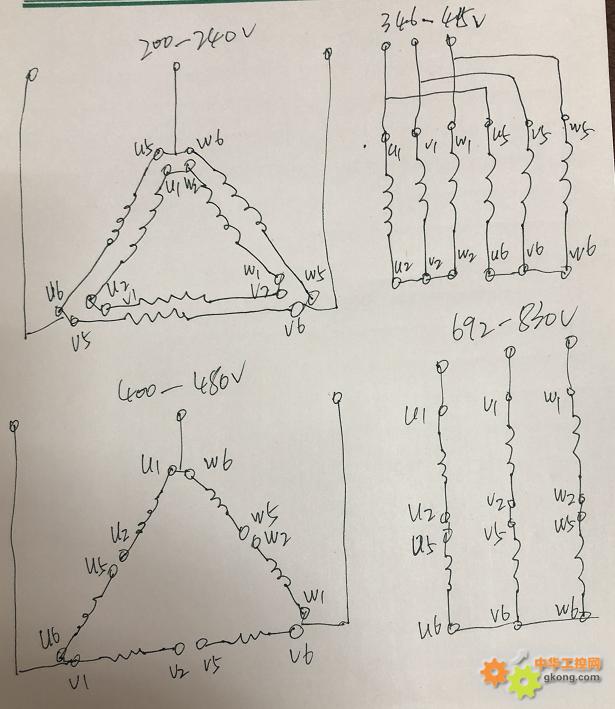 200-240V
346-415V
U5 W6
U1 W2
U6 U2 V1 W1 V2 W5
V5 V6
U1 V1 W1 U5 V5 W5
U2 V2 W2 U6 V6 W6
400-480V
U1 W6
U2 W5
U5 W2
U6 W1
V1 V2 V5 V6
692-830V
U1 V1 W1
U2 V2 W2
U5 V5 W5
U6 V6 W6
中华工控网
gkong.com